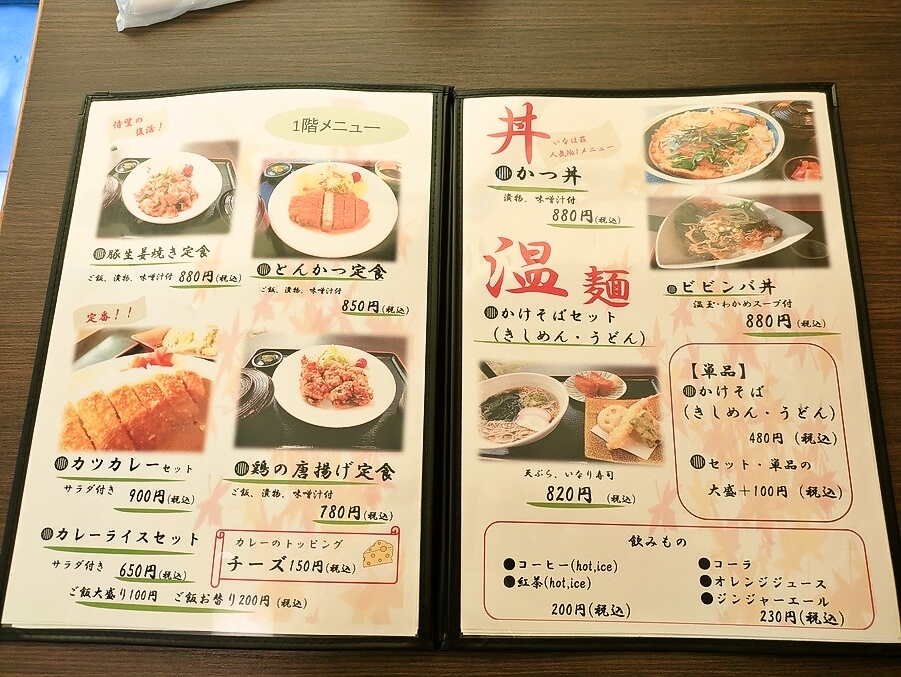 待望の
復活！
1階メニュー
豚生姜焼き定食
ご飯、漬物、味噌汁付 880円(税込)
とんかつ定食
ご飯、漬物、味噌汁付
850円(税込)
定番！！
カツカレーセット
サラダ付き 900円(税込)
鶏の唐揚げ定食
ご飯、漬物、味噌汁付
780円(税込)
カレーライスセット
サラダ付き 650円(税込)
カレーのトッピング
チーズ150円(税込)
ご飯大盛り100円 ご飯お替り200円(税込)
丼
いなほ荘
人気No.1メニュー
かつ丼
漬物、味噌汁付
880円(税込)
ビビンバ丼
温玉・わかめスープ付
880円(税込)
温麺
かけそばセット
(きしめん・うどん)
天ぷら、いなり寿司
820円(税込)
【単品】
かけそば
(きしめん・うどん)
480円(税込)
セット・単品の
大盛＋100円(税込)
飲みもの
●コーヒー(hot,ice)
●紅茶(hot,ice)
200円(税込)
●コーラ
●オレンジジュース
●ジンジャーエール
230円(税込)